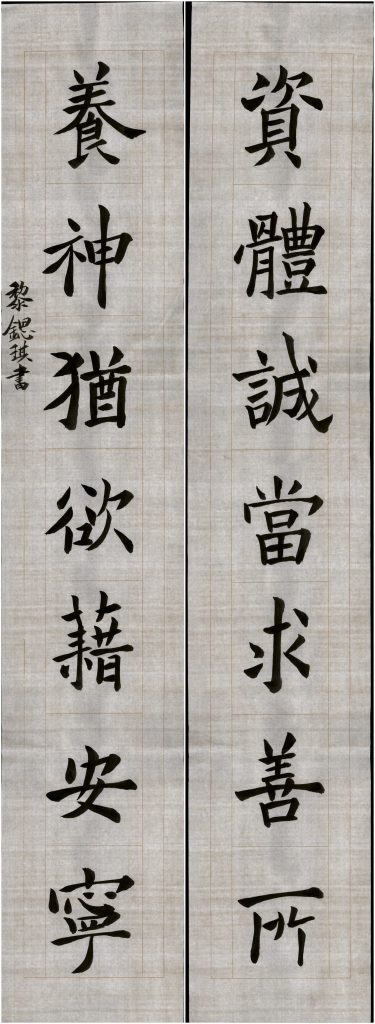 資體誠當求善所
養神猶欲藉安寧
黎鍶琪書